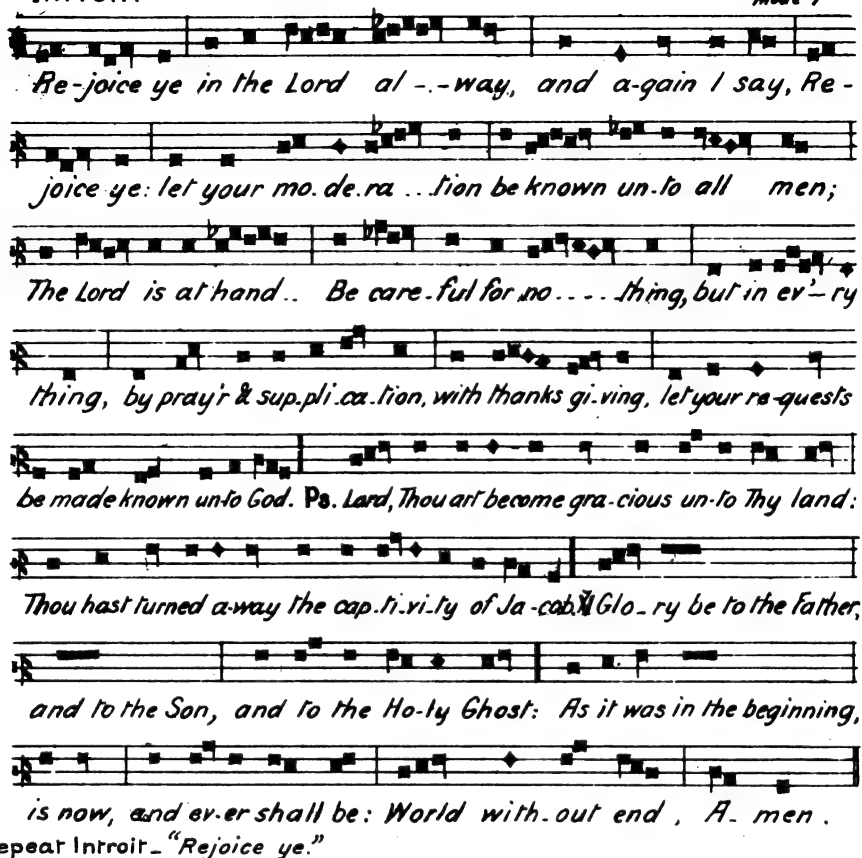 Re-joice ye in the Lord al-.-way, and a-gain I say, Re-
joice ye: let your mo.de.ra...tion be known un-to all men;
The Lord is at hand.. Be care-ful for no....thing, but in ev'-ry
thing, by pray'r & sup-pli.ca-tion, with thanks gi-ving, let your re-quests
be made known un-to God. Ps. Lord, Thou art become gra-cious un-to Thy land:
Thou hast turned a-way the cap-ti-vi-ty of Ja-cob. Glo-ry be to the Father,
and to the Son, and to the Ho-ly Ghost: As it was in the beginning,
is now, and ev-er shall be: World with-out end, A-men.
epeat Introit_ "Rejoice ye."